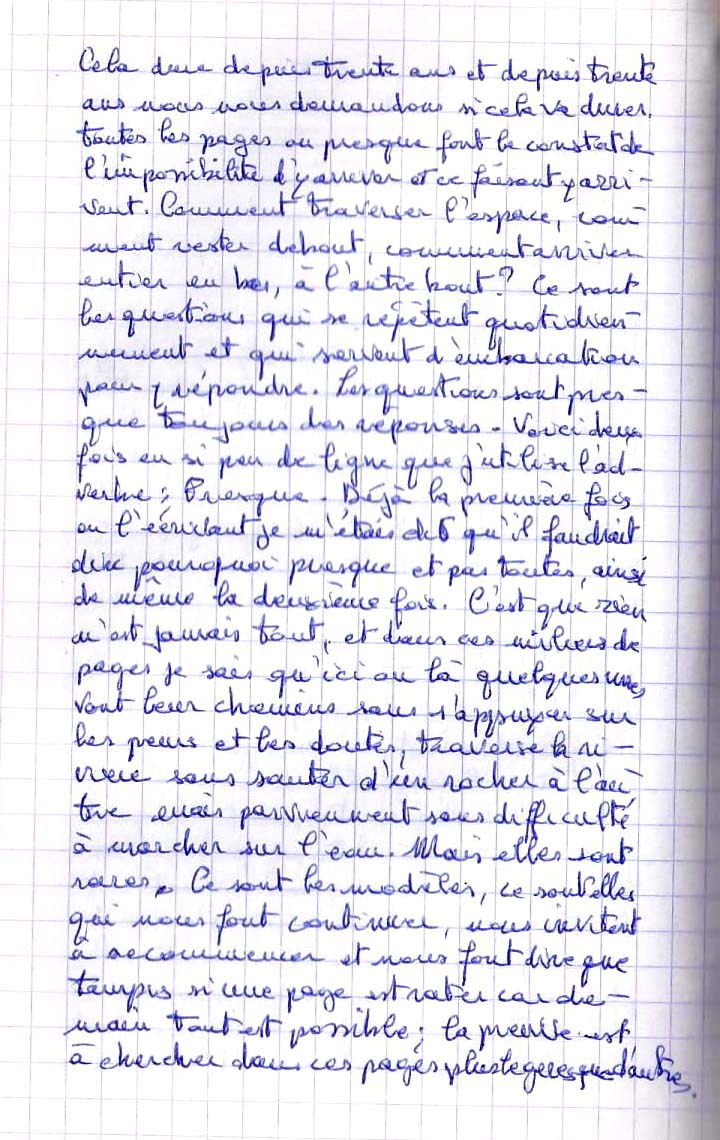 Cela dure depuis trente ans et depuis trente
ans nous nous demandons si cela va durer.
toutes les pages ou presque font le constat de
l'impossibilité d'y arriver et ce faisant y arri-
vent. Comment traverser l'espace, com-
ment rester debout, comment arriver
entier en bas, à l'autre bout? Ce sont
les questions qui se répètent quotidien-
nement et qui servent d'embarcation
pour y répondre. Les questions sont pres-
que toujours des réponses. Voici deux
fois en si peu de ligne que j'utilise l'ad-
verbe: Presque. Déjà la première fois
en l'écrivant je m'étais dit qu'il faudrait
dire pourquoi presque et pas toutes, ainsi
de même la deuxième fois. C'est que rien
n'est jamais tout, et dans ces milliers de
pages je sais qu'ici ou là quelques unes
vont leur chemins sans s'appuyer sur
les peurs et les doutes, traverse la ri-
viere sans sauter d'un rocher à l'au-
tre mais parviennent sans difficulté
à marcher sur l'eau. Mais elles sont
rares. Ce sont les modèles, ce sont elles
qui nous font continuer, nous invitent
à recommencer et nous font dire que
tampis si une page est ratée car de-
main tout est possible; la preuve est
à chercher dans ces pages plus legeres que d'autres.